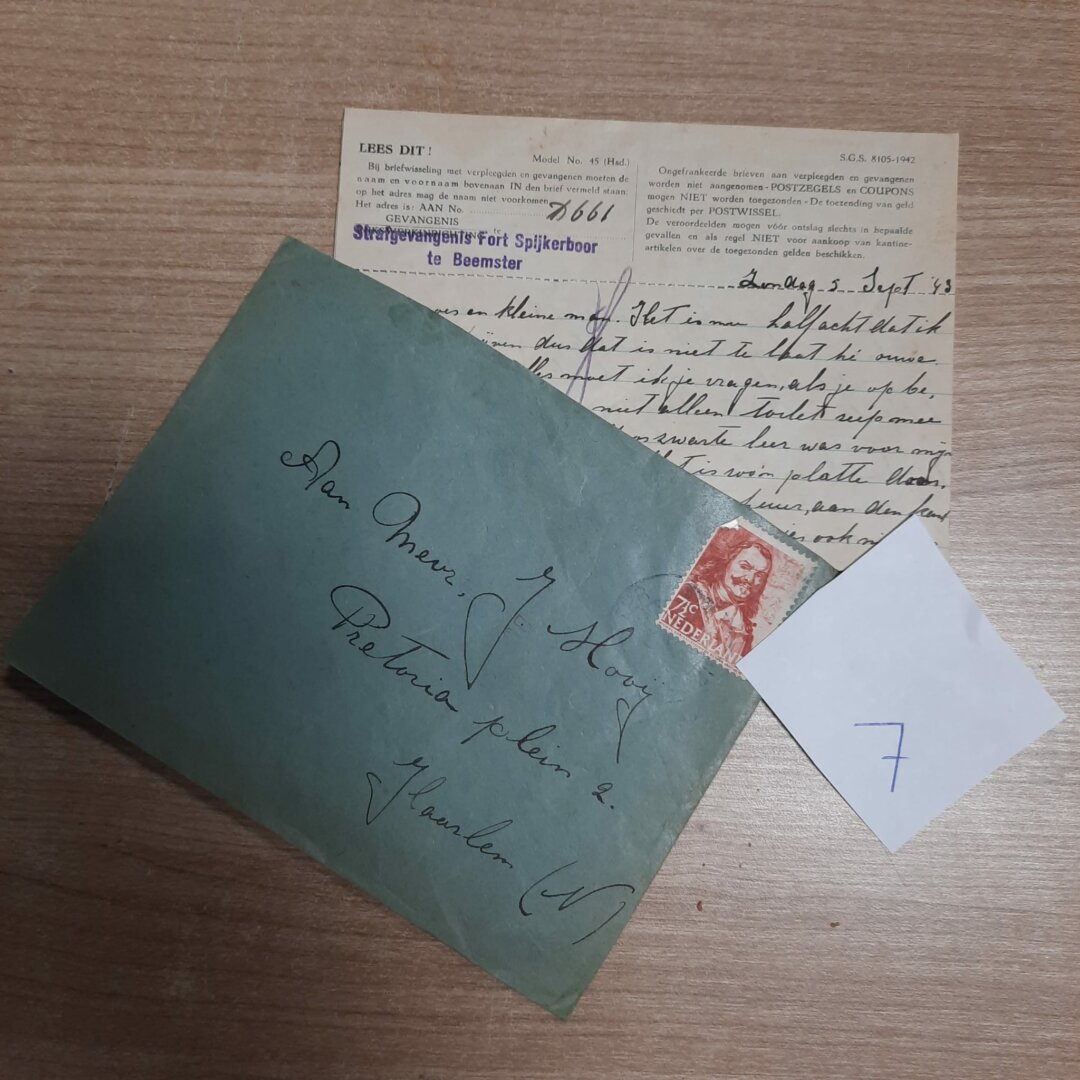 LEES DIT!
Model No. 45 (Hsd.)
Bij briefwisseling met verpleegden en gevangenen moeten de
naam en voornaam bovenaan IN den brief vermeld staan:
op het adres mag de naam niet voorkomen.
Het adres is: AAN No. D661
GEVANGENIS
Strafgevangenis Fort Spijkerboor
te Beemster
S.G.S. 8105-1942
Ongefrankeerde brieven aan verpleegden en gevangenen
worden niet aangenomen - POSTZEGELS en COUPONS
mogen NIET worden toegezonden - De toezending van geld
geschiedt per POSTWISSEL.
De veroordeelden mogen vóór ontslag slechts in bepaalde
gevallen en als regel NIET voor aankoop van kantine-
artikelen over de toegezonden gelden beschikken.
Zondag 5 Sept '43
en kleine man. Het is nu half acht dat ik
dus dat is niet te laat hé ouwe
moet ik je vragen, als je op be,
niet alleen toilet zeep mee
zwarte leer was voor mijn
is zoo'n platte doos.
aan den
ook
Aan Mevr. J Hooij
Pretoria plein 2.
Haarlem (N)
7½ c
NEDERLAND
7